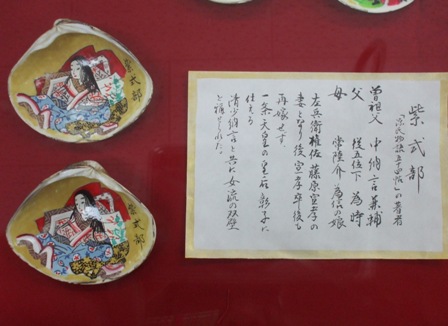 紫式部
「源氏物語五十四帖」の著者
曽祖父 中納言兼輔
父 従五位下 為時
母 常陸介 為信の娘
左兵衛権佐 藤原宣孝の
妻となり後宣孝卒後も
再嫁せず、
一条天皇の皇后彰子に
仕える
清少納言と共に女流の双壁
と称せられた。
紫式部
紫式部